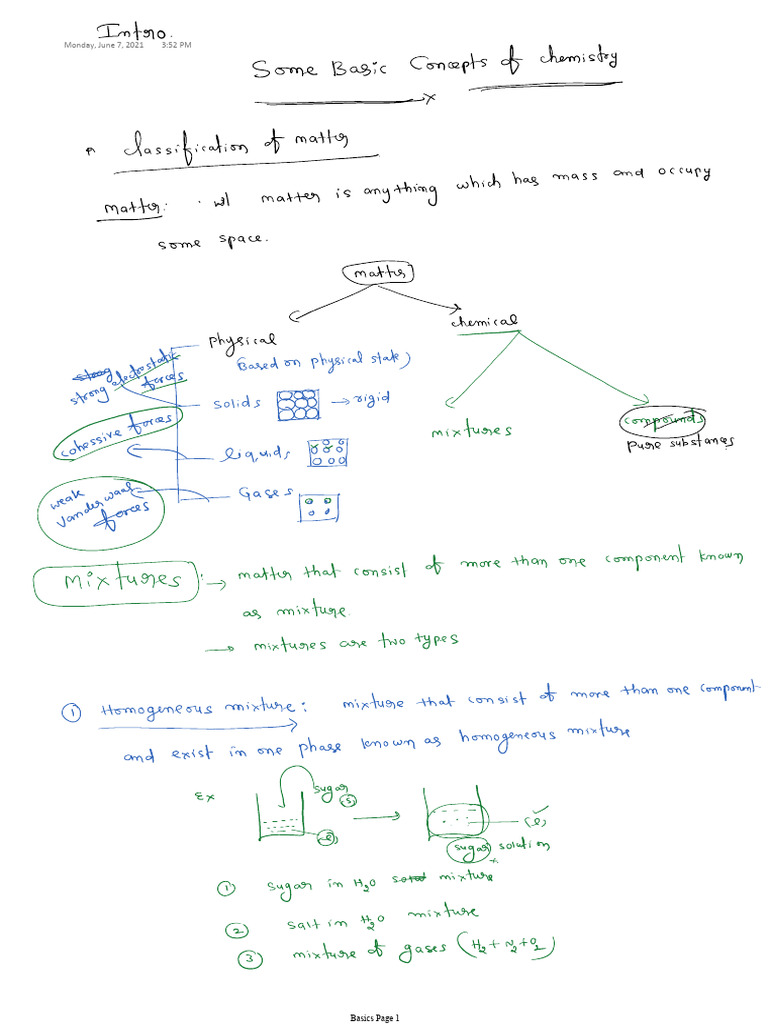 Intro.
Monday, June 7, 2021 3:52 PM
Some Basic Concepts of chemistry
classification of matter
matter: matter is anything which has mass and occupy
some space.
matter
physical
chemical
(Based on physical state)
strong electrostatic
forces
solids → rigid
cohessive forces
liquids
mixtures
compounds
pure substances
Gases
weak
Vanderwaal
forces
Mixtures: → matter that consist of more than one component known
as mixture.
→ mixtures are two types
① Homogeneous mixture: mixture that consist of more than one component
and exist in one phase known as homogeneous mixture
Ex
sugar
(s)
(l)
(l)
sugar solution
① sugar in H₂O mixture
② salt in H₂O mixture
③ mixture of gases (H₂ + N₂ + O₂)
Basics Page 1